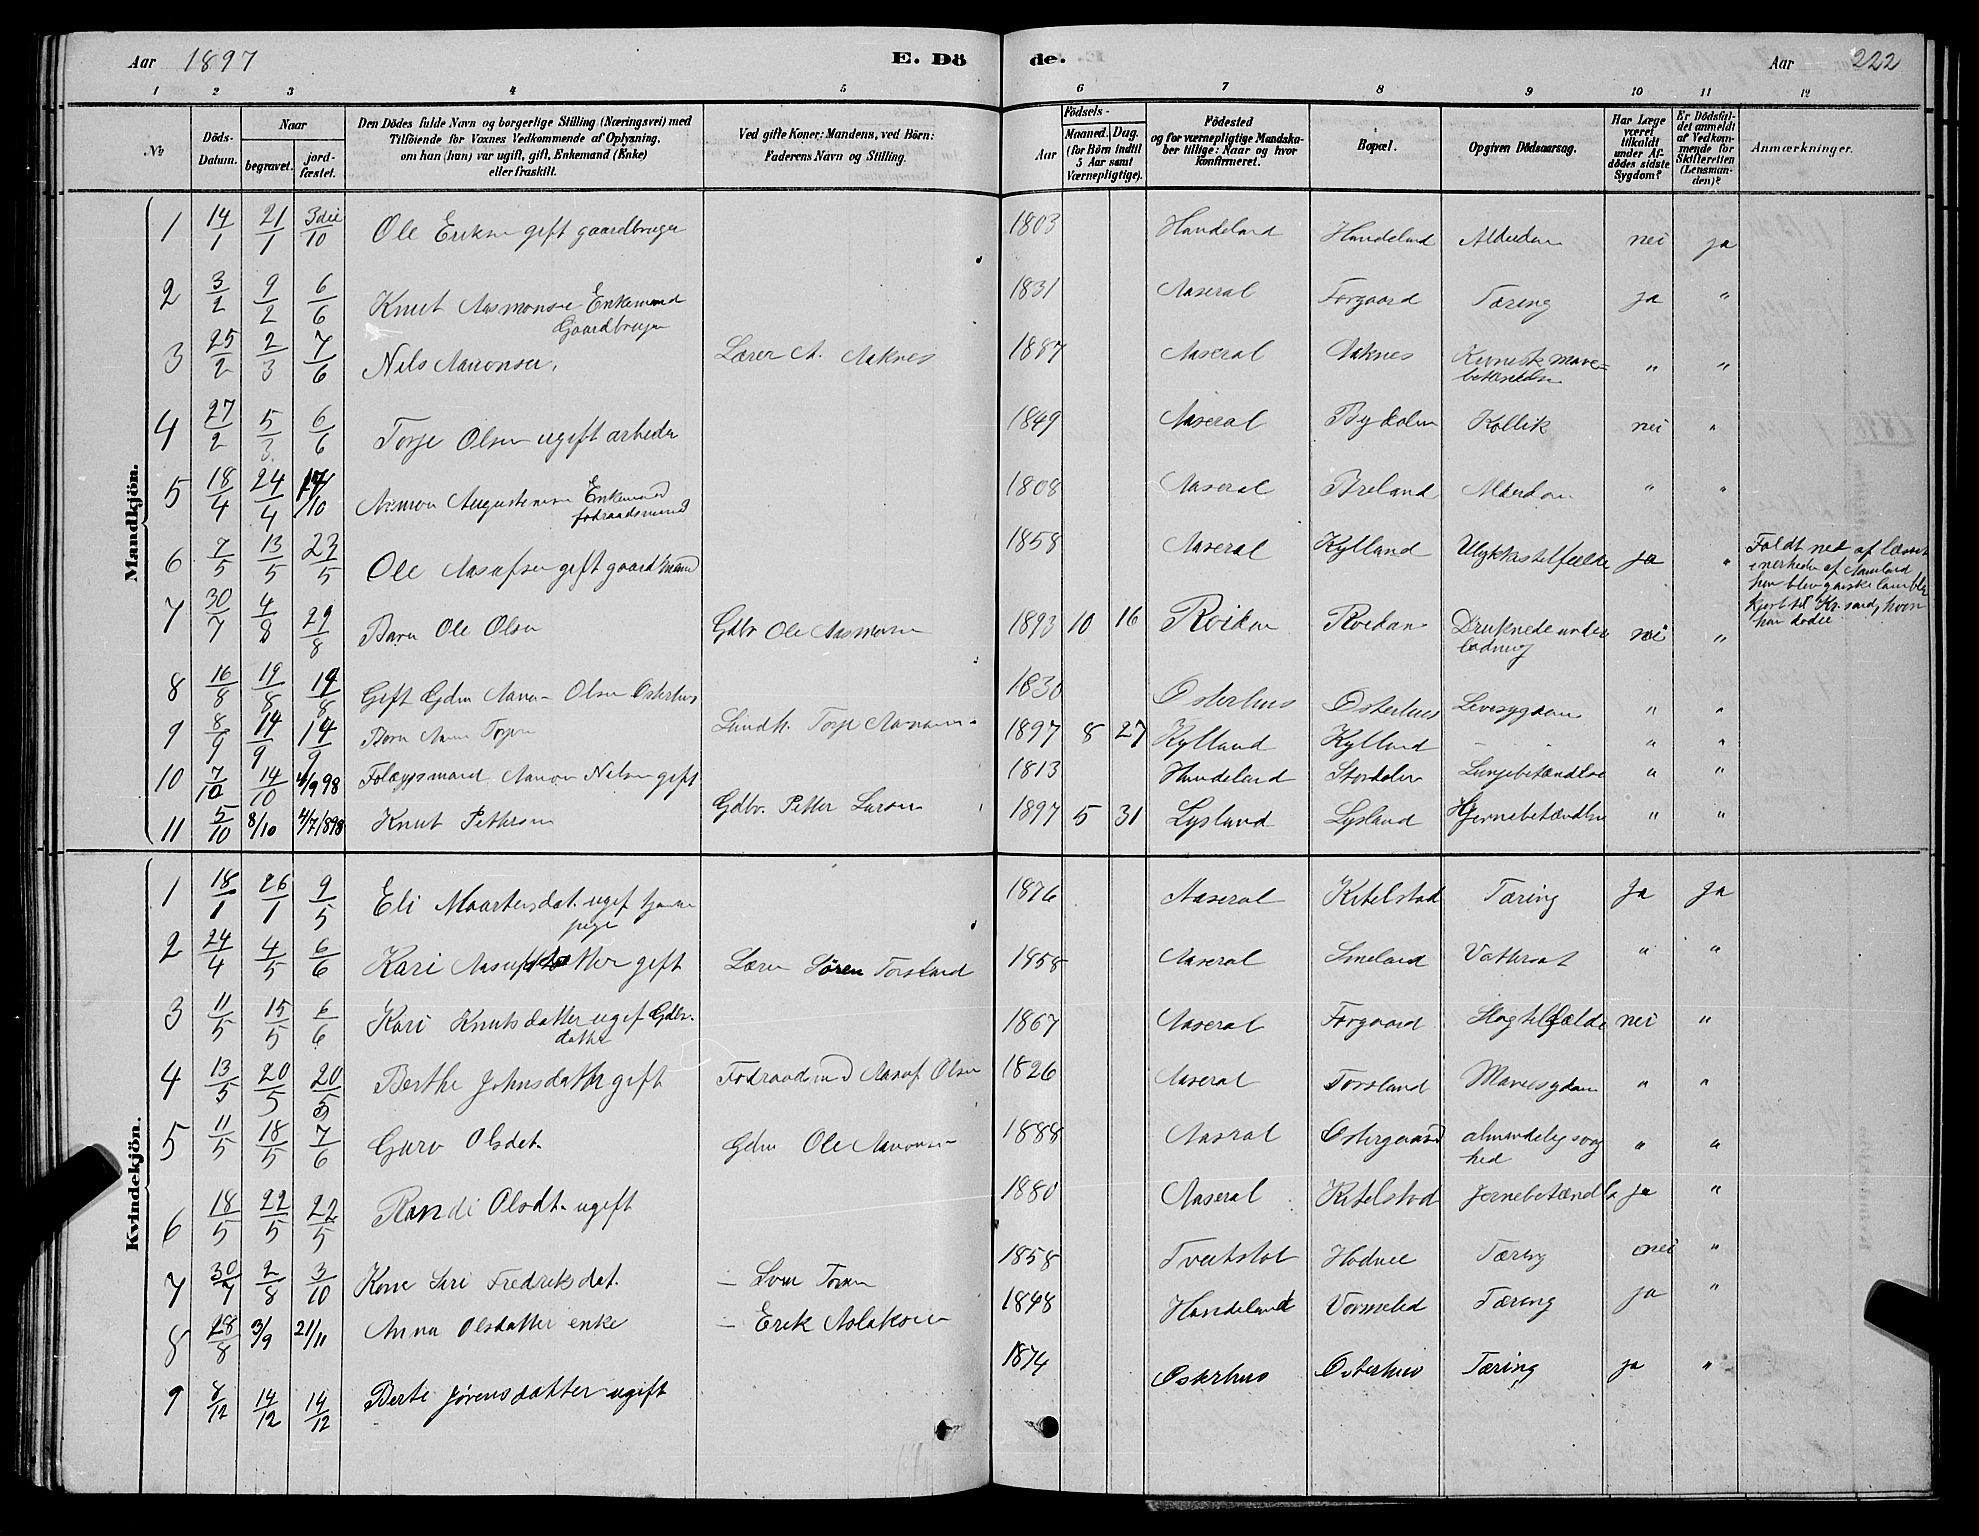 Aar 1897 E. Dö de. Aar 222
1 2 3 4 5 6 7 8 9 10 11 12
No Döds-Datum. Naar begravet. jordfæstet. Den Dödes fulde Navn og borgerlige Stilling (Næringsvei) med Tilföiende for Voxnes Vedkommende af Oplysning, om han (hun) var ugift, gift, Enkemand (Enke) eller fraskilt. Ved gifte Koner: Mandens, ved Börn: Faderens Navn og Stilling. Födsels- Aar Maaned. Dag. (for Börn indtil 5 Aar samt Værnepligtige). Födested og for værnepligtige Mandskaber tillige: Naar og hvor konfirmeret. Bopæl. Opgiven Dödsaarsag. Har Læge været tilkaldt under Afdödes sidste Sygdom? Er Dödsfaldet anmeldt af Vedkommende for Skifteretten (Lensmanden)? Anmærkninger.
Mandkjön.
1 14/1 21/1 3die/10 Ole Eriksen gift gaardbruger 1803 Handeland Handeland Alderdom nei ja
2 3/2 9/2 6/6 Knut Aasmonsen Enkemand Gaardbruger 1831 Aaseral Forgaard Tæring ja "
3 25/2 2/3 7/6 Nils Aanonsen. Lærer A. Aaknes 1887 Aaseral Aaknes Kronisk mavebetændelse " "
4 27/2 5/3 6/6 Torje Olsen ugift arbeder 1849 Aaseral Bydalen Kollik nei "
5 18/4 24/4 /10 Augustensen Enkemand fodraadsmand 1808 Aaseral Breland Alderdom " "
6 7/5 13/5 23/5 Ole Aasufsen gift gaardmand 1858 Aaseral Kylland Ulykkestilfælde ja " Faldt ned af læsset i nerheden af han blev ganske kjørt til Kr.sand, hvor han døde
7 30/7 4/8 29/8 Barn Ole Olsen Gdbr Ole Aasmonsen 1893 10 16 Roidan Roidan Druknede under ladning nei "
8 16/8 19/8 19/8 Gift Gdm Aanon Olsen Osterhus 1830 Osterhus Osterhus Levesygdom " "
9 8/9 14/9 14/9 Barn Torjesen Torje Aanonsen 1897 8 27 Kylland Kylland - " "
10 7/10 14/10 4/9 98 Folægsmand Aanon Nilsen gift 1813 Handeland Stordalen Lunjebetændlse " "
11 5/10 8/10 4/7 1898 Knut Pettersen Gdbr. Petter Larsen 1897 5 31 Lysland Lysland Hjernebetændlse " "
Kvindekjön.
1 18/1 26/1 9/5 Eli Maartensdat. ugif tjeneste pige 1876 Aaseral Kitelstad Tæring Ja Ja
2 24/4 4/5 6/6 Kari Aasufsdatter gift Lærer Sören Torsland 1858 Aaseral Smeland Vattersot " "
3 11/5 15/5 6/6 Kari Knutsdatter ugif Gdbr.datter 1867 Aaseral Forgaard Slagtilfælde nei "
4 13/5 20/5 20/5 Berthe Johnsdatter gift Fodraadsmd Aasuf Olsen 1826 Aaseral Torsland Mavesygdom " "
5 11/5 18/5 7/6 Guro Olsdet. Gdm Ole Aanonsen 1888 Aaseral Ostergaard almindelig svaghed " "
6 18/5 22/5 22/5 Randi Olsdt. ugift 1880 Aaseral Kitelstad Jernebetændls ja "
7 30/7 2/8 3/10 Kone Siri Fredriksdat. - Sven Torsen 1858 Tveitstol Hodnee Tæring nei "
8 28/8 3/9 21/11 Anna Olsdatter enke - Erik Aslaksen 1848 Handeland Vormelid Tæring ja "
9 8/12 14/12 14/12 Berte Jörensdatter ugift 1874 Osterhus Osterhus Tæring ja "